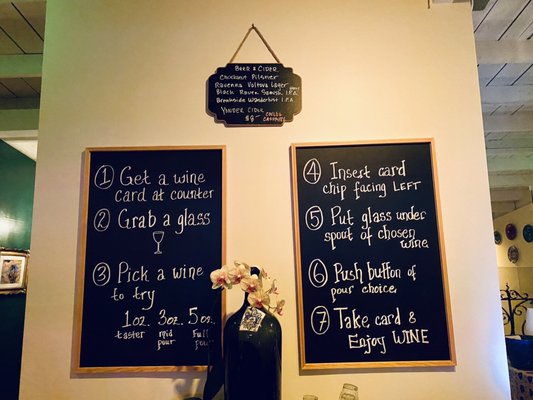 BEER & CIDER
CHUCKANUT PILSNER
RAVENNA VOLTAVA LAGER
BLACK RAVEN I.P.A.
WANDERLUST I.P.A.
YONDER CIDER
$8
① Get a wine
card at counter
② Grab a glass
③ Pick a wine
to try
1oz. 3oz. 5oz.
taster mid Full
pour pour
④ Insert card
chip facing LEFT
⑤ Put glass under
spout of chosen
wine
⑥ Push button of
pour choice.
⑦ Take card &
Enjoy WINE